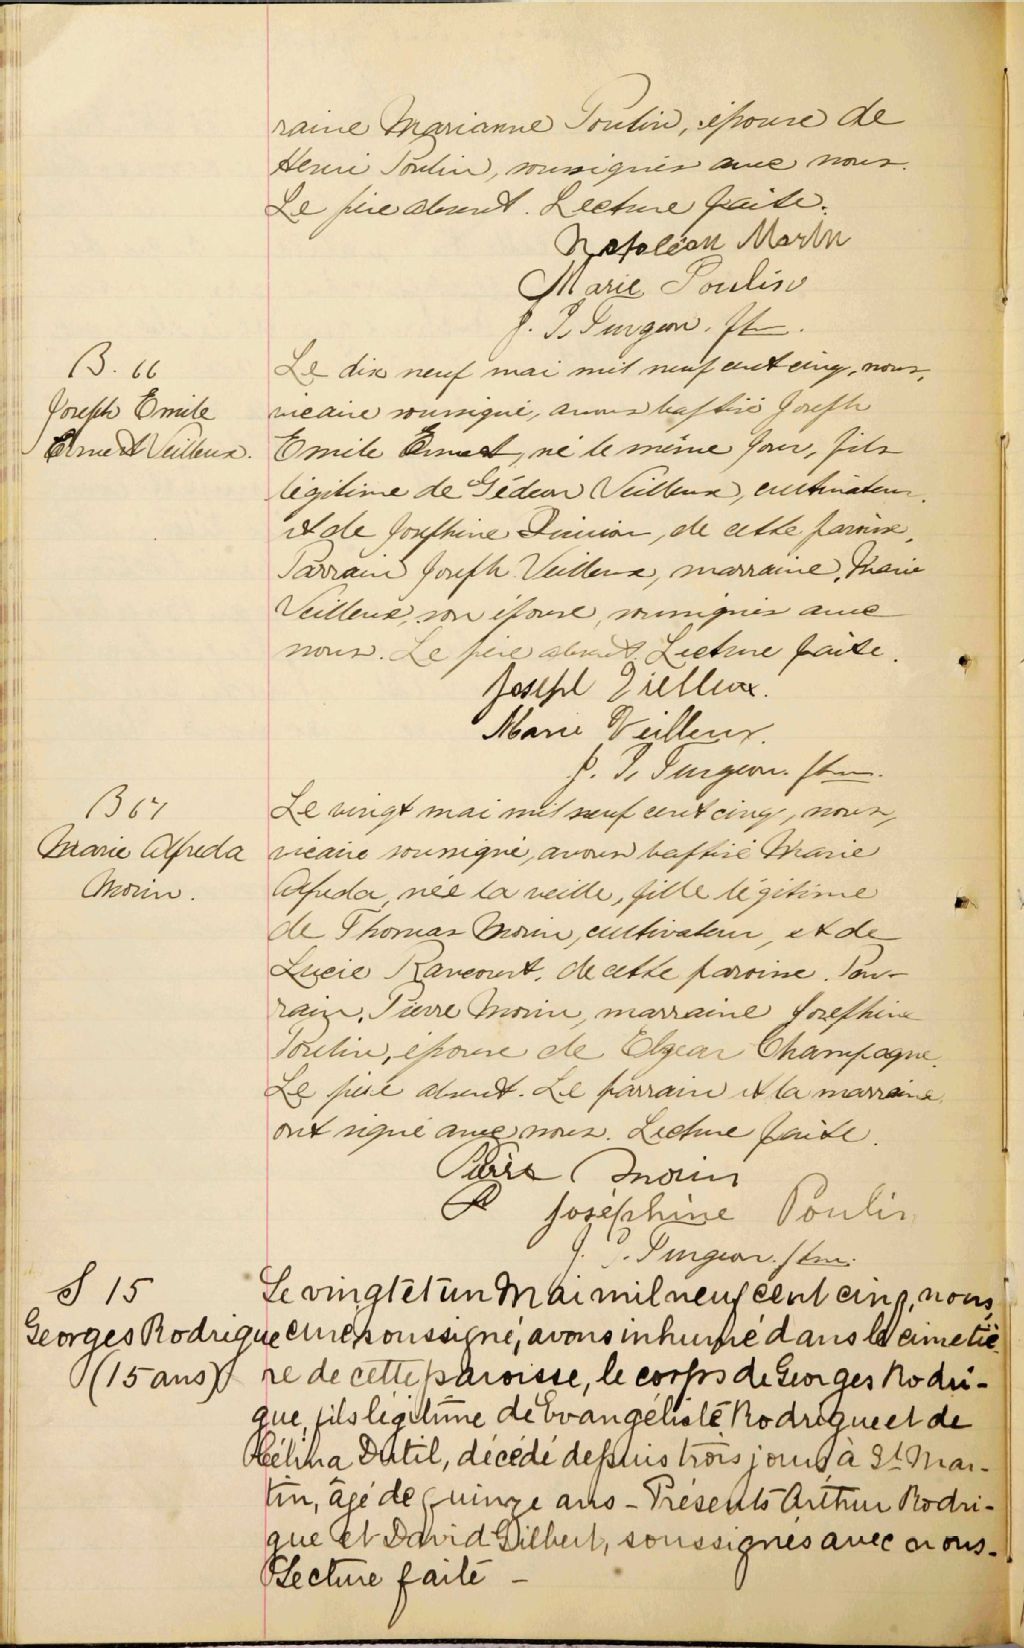 raine Marianne Poulin, épouse de
Henri Poulin, soussignés avec nous.
Le père absent. Lecture faite.
Napoléon Morin
Marie Poulin
J. P. Turgeon. Ptre.
B. 66
Joseph Emile
Ernest Veilleux.
Le dix neuf mai mil neuf cent cinq, nous,
vicaire soussigné, avons baptisé Joseph
Emile Ernest, né le même jour, fils
légitime de Gédeon Veilleux, cultivateur,
et de Josephine Quirion, de cette paroisse.
Parrain Joseph Veilleux, marraine, Marie
Veilleux, son épouse, soussignés avec
nous. Le père absent. Lecture faite.
Joseph Vielleux.
Marie Veilleux.
J. P. Turgeon. Ptre.
B 67
Marie Alfreda
Morin.
Le vingt mai mil neuf cent cinq, nous,
vicaire soussigné, avons baptisé Marie
Alfreda, née la veille, fille légitime
de Thomas Morin, cultivateur, et de
Lucie Rancourt, de cette paroisse. Par-
rain, Pierre Morin, marraine Josephine
Poulin, épouse de Elzear Champagne.
Le père absent. Le parrain et la marraine
ont signé avec nous. Lecture faite.
Pierre Morin
Joséphine Poulin
J. P. Turgeon. Ptre.
S 15
Georges Rodrigue
(15 ans)
Le vingt et un Mai mil neuf cent cinq, nous,
curé soussigné, avons inhumé dans le cimetiè-
re de cette paroisse, le corps de Georges Rodri-
gue, fils légitime de Evangéliste Rodrigue et de
Célina Dutil, décédé depuis trois jours à St Mar-
tin, âgé de quinze ans - Présents Arthur Rodri-
gue et David Gilbert, soussignés avec nous -
Lecture faite -